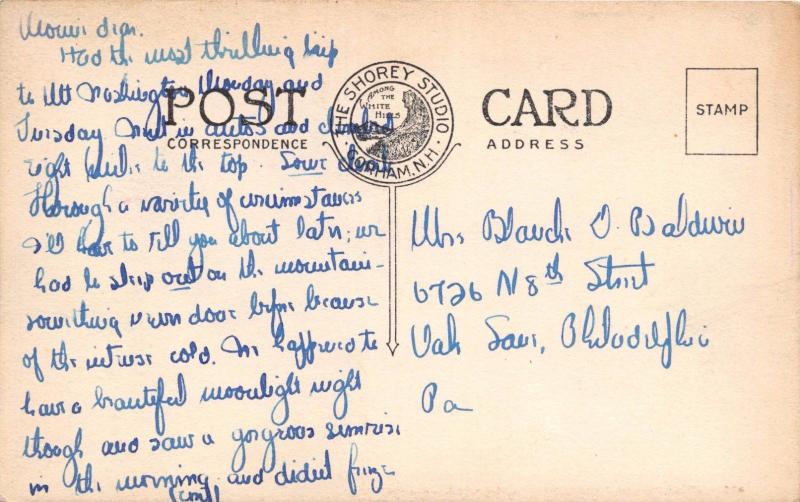 Momie dear.
Had the most thrilling trip
to Mt Washington Monday and
Tuesday. Went in autos and climbed
eight miles to the top. Some climb
Through a variety of circumstances
I'll have to tell you about later, we
had to sleep out on the mountain -
something never done before because
of the intense cold. We happened to
have a beautiful moonlight night
though and saw a gorgeous sunrise
in the morning and didn't freeze
(cont)
POST CARD
CORRESPONDENCE
ADDRESS
THE SHOREY STUDIO
AMONG
THE
WHITE
HILLS
GORHAM, N.H.
STAMP
Mrs Blanche D. Baldwin
6726 N 8th Street
Oak Lane, Philadelphia
Pa